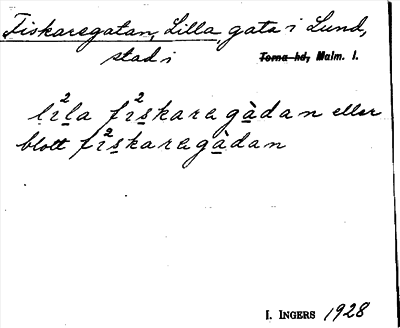 Fiskaregatan, Lilla, gata i Lund,
stad i Torna hd, Malm. l.
lı²la fı²skaragàdan eller
blott fı²skaragàdan
I. INGERS 1928